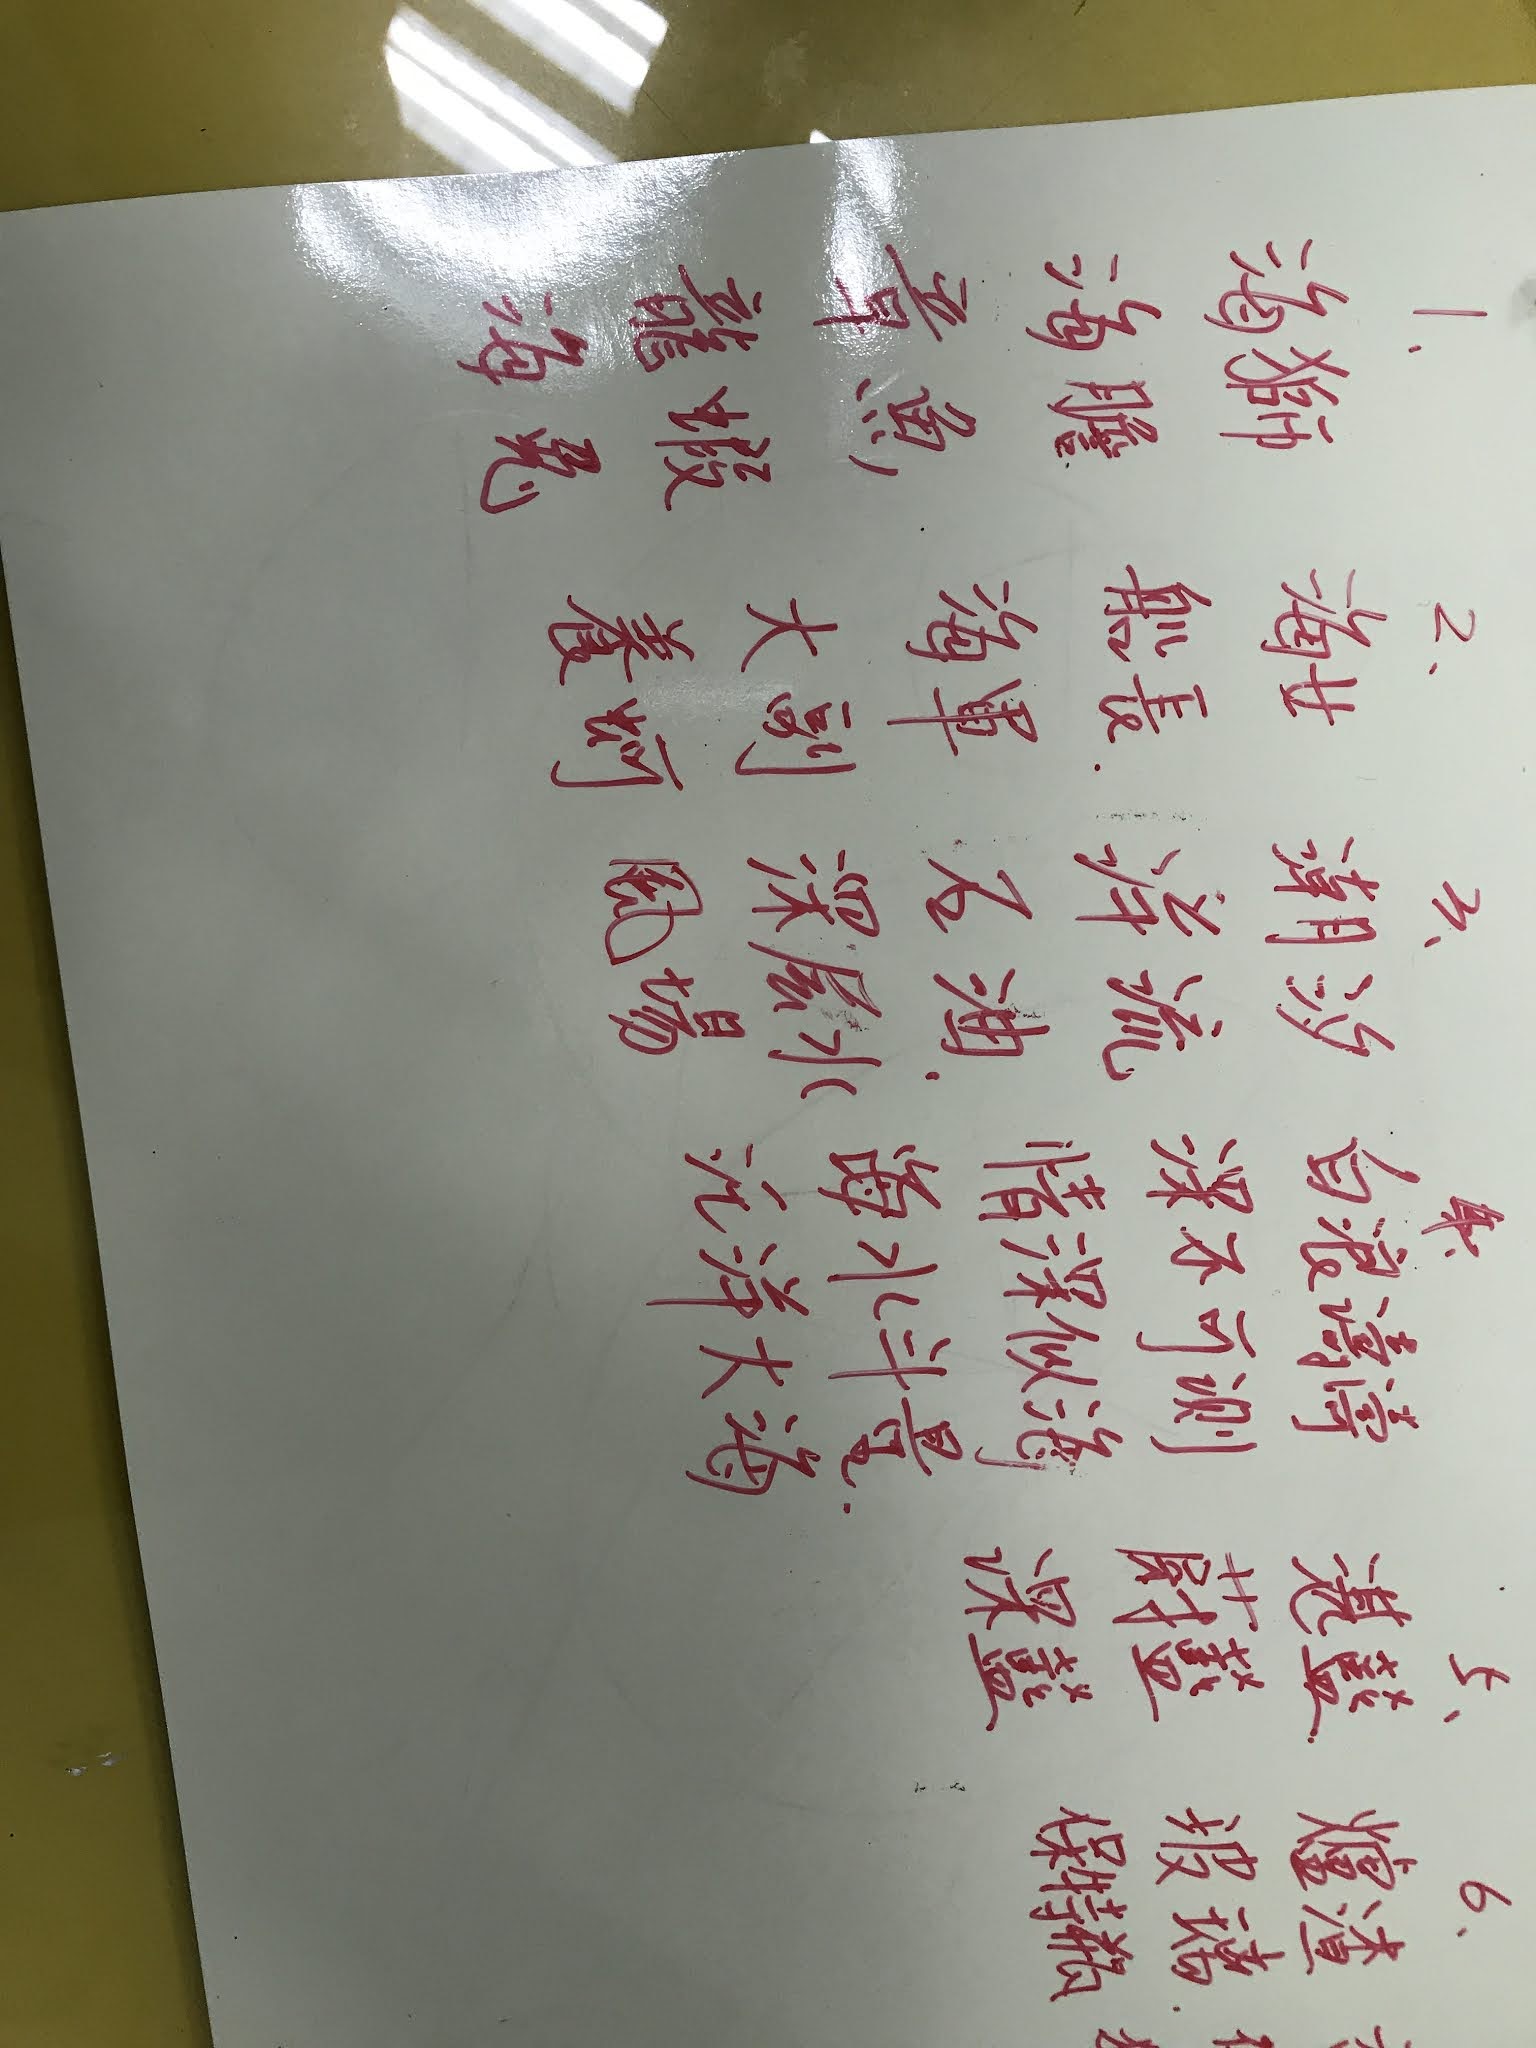 1.
海獅
海膽
章魚
龍蝦
海龜
2、
海女
船長
海軍
大副
養蚵
3、
潮汐
洋流
石油
深層水
風場
4、
白浪濤濤
深不可測
情深似海
海水斗量
汪洋大海
5、
湛藍
蔚藍
深藍
6、
爐渣
玻璃
保特瓶